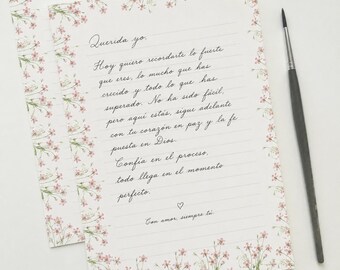 Querida yo,
Hoy quiero recordarte lo fuerte
que eres, lo mucho que has
crecido y todo lo que has
superado. No ha sido fácil,
pero aquí estás, sigue adelante
con tu corazón en paz y la fe
puesta en Dios.
Confía en el proceso,
todo llega en el momento
perfecto.
Con amor, siempre tú.